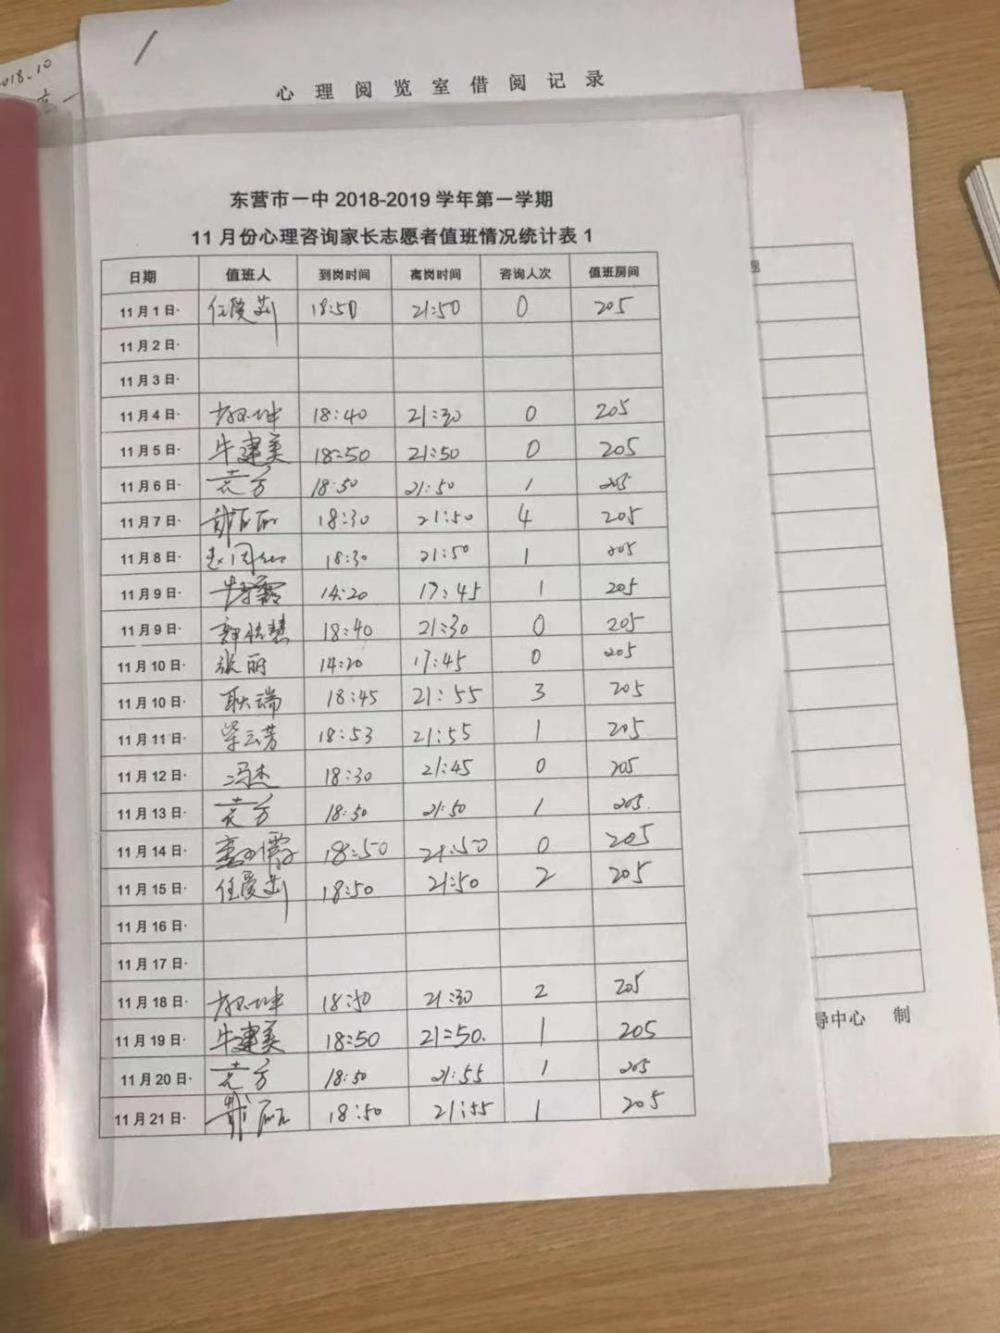 2018.10
心理阅览室借阅记录
东营市一中 2018-2019 学年第一学期
11 月份心理咨询家长志愿者值班情况统计表 1
日期 值班人 到岗时间 离岗时间 咨询人次 值班房间
11 月 1 日· 任爱莉 18:50 21:50 0 205
11 月 2 日·
11 月 3 日·
11 月 4 日· 18:40 21:30 0 205
11 月 5 日· 牛建美 18:50 21:50 0 205
11 月 6 日· 袁方 18:50 21:50 1 205
11 月 7 日· 18:30 21:50 4 205
11 月 8 日· 18:30 21:50 1 205
11 月 9 日· 14:20 17:45 1 205
11 月 9 日· 18:40 21:30 0 205
11 月 10 日· 张丽 14:20 17:45 0 205
11 月 10 日· 耿瑞 18:45 21:55 3 205
11 月 11 日· 柴云芳 18:53 21:55 1 205
11 月 12 日· 冯杰 18:30 21:45 0 205
11 月 13 日· 袁方 18:50 21:50 1 205.
11 月 14 日· 18:50 21:50 0 205
11 月 15 日· 任爱莉 18:50 21:50 2 205
11 月 16 日·
11 月 17 日·
11 月 18 日· 18:50 21:30 2 205
11 月 19 日· 牛建美 18:50 21:50. 1 205
11 月 20 日· 袁方 18:50 21:55 1 205
11 月 21 日· 18:50 21:55 1 205
导中心 制